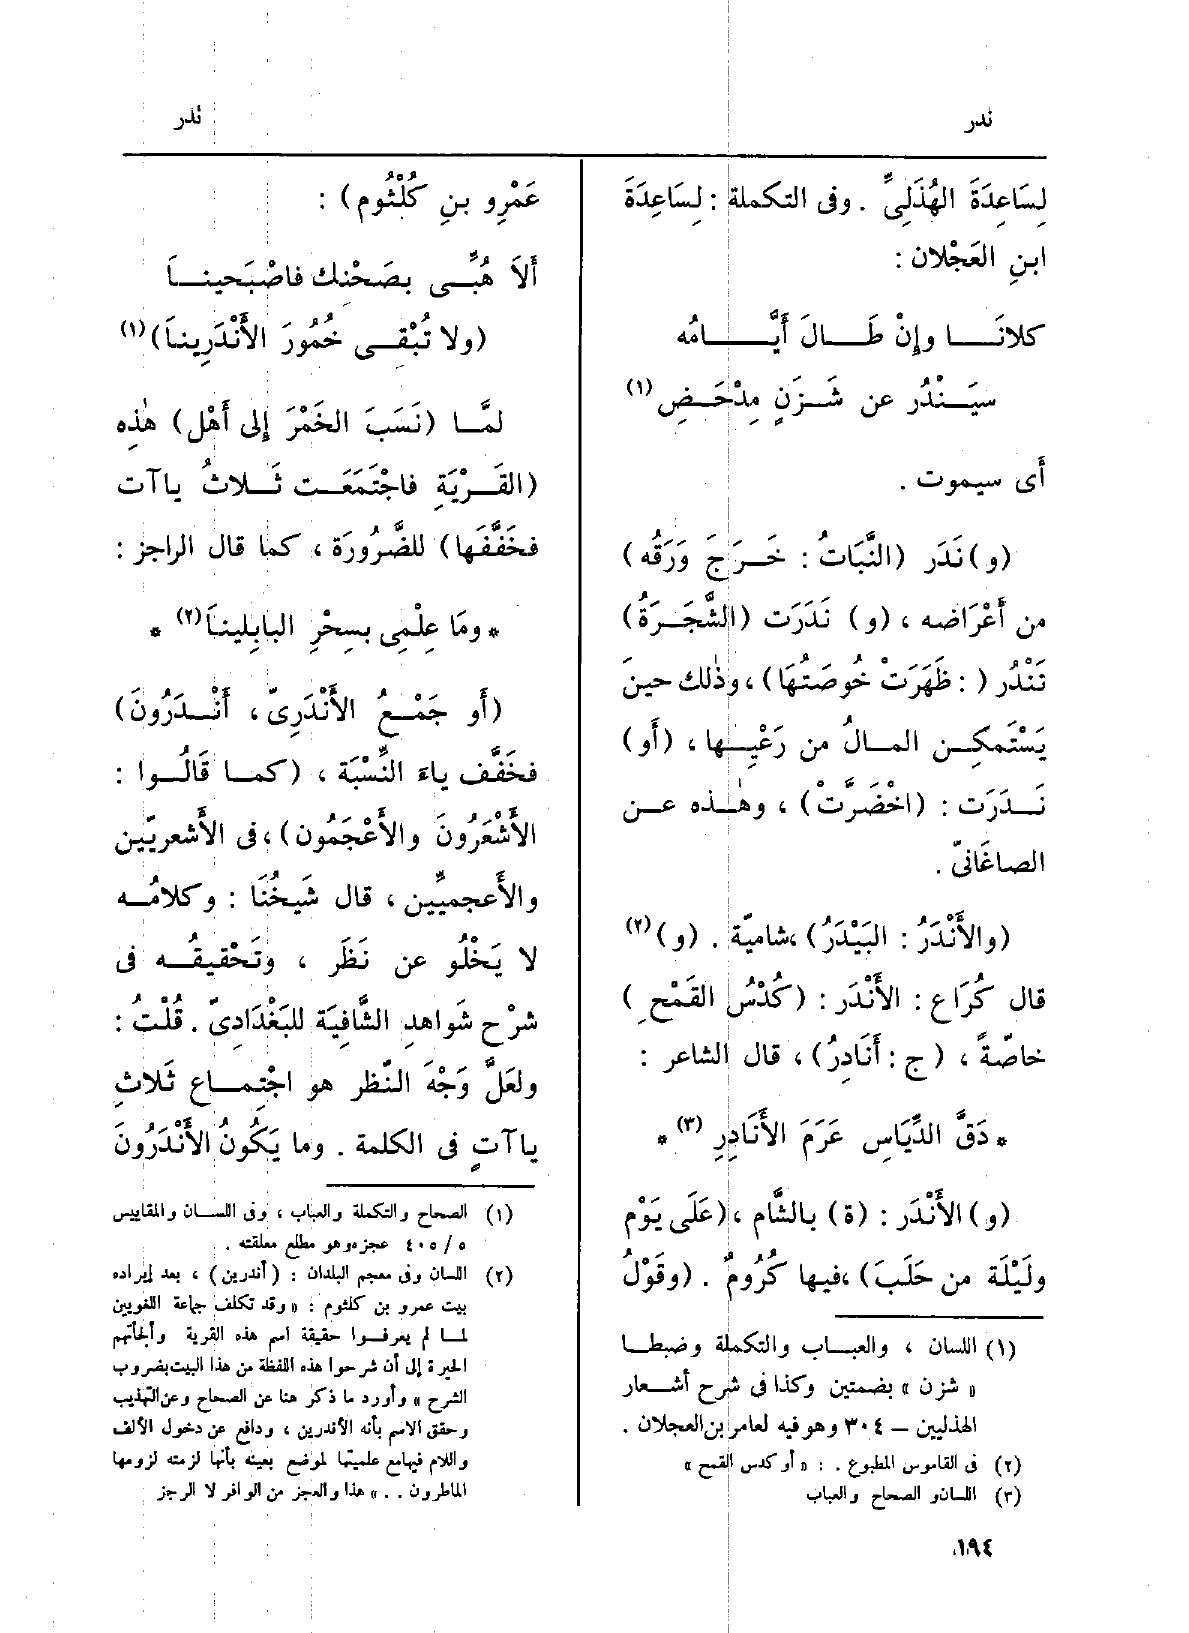 ندر
ندر
لِسَاعِدَةَ الهُذَلِىِّ . وفى التكملة : لِسَاعِدَةَ
ابنِ العَجْلان :
كلانَــا وإنْ طَــالَ أَيَّــامُه
سيَنْدُر عن شَزَنٍ مِدْحَضِ (١)
أَى سيموت .
(و) نَدَر (النَّبَاتُ : خَرَجَ وَرَقُه)
من أَعْرَاضه ، (و) نَدَرَت (الشَّجَرَةُ)
تَنْدُر ( : ظَهَرَتْ خُوصَتُهَا) ، وذٰلك حينَ
يَسْتَمكِن المالُ من رَعْيِها ، (أَو)
نَدَرَت : (اخْضَرَّتْ) ، وهٰذه عن
الصاغَانىّ .
(والأَنْدَرُ : البَيْدَرُ) ، شاميّة . (و) (٢)
قال كُرَاع : الأَنْدَر : (كُدْسُ القَمْحِ )
خاصّةً ، ( ج : أَنَادِرُ) ، قال الشاعر :
* دَقَّ الدِّيَاسِ عَرَمَ الأَنَادِرِ (٣) *
(و) الأَنْدَر : (ة) بالشَّام ، (عَلَى يَوْمٍ
ولَيْلَة من حَلَبَ) ، فيها كُرُومٌ . (وقَوْلُ
(١) اللسان ، والعباب والتكملة وضبطا
« شزن » بضمتين وكذا فى شرح أشعار
الهذليين – ٣٠٤ وهو فيه لعامر بن العجلان .
(٢) فى القاموس المطبوع . : « أو كدس القمح »
(٣) اللسان و الصحاح والعباب
عَمْرِو بنِ كُلْثُوم) :
أَلاَ هُبِّى بصَحْنك فاصْبَحينا
(ولا تُبْقِى خُمُورَ الأَنْدَرِينَا) (١)
لمَّا (نَسَبَ الخَمْرَ إلى أَهْل) هٰذِه
(القَرْيَةِ فاجْتَمَعَت ثَلاثُ ياآت
فخَفَّفَها) للضَّرُورَة ، كما قال الراجز :
* ومَا عِلْمِى بِسِحْرِ البابِلِينَا (٢) *
(أَو جَمْعُ الأَنْدَرِىّ ، أَنْدَرُونَ)
فخَفَّف ياءَ النِّسْبَة ، (كما قَالُوا :
الأَشْعَرُونَ والأَعْجَمُون) ، فى الأَشعريّين
والأَعجميِّين ، قال شَيخُنَا : وكلامُه
لا يَخْلُو عن نَظَر ، وتَحْقيقُه فى
شرْح شواهدِ الشَّافِيَة للبَغْدَادىّ . قُلْتُ :
ولعَلَّ وَجْهَ النَّظر هو اجْتِماع ثَلاثِ
ياآتٍ فى الكلمة . وما يَكُونُ الأَنْدَرُونَ
(١) الصحاح والتكملة والعباب ، وفى اللسان والمقاييس
٥ / ٤٠٥ عجزه وهو مطلع معلقته .
(٢) اللسان وفى معجم البلدان : (أندرين) ، بعد إيراده
بيت عمرو بن كلثوم : « وقد تكلف جماعة اللغويين
لما لم يعرفوا حقيقة اسم هذه القرية وألجأتهم
الحيرة إلى أن شرحوا هذه اللفظة من هذا البيت بضروب
الشرح » وأورد ما ذكر هنا عن الصحاح وعن التهذيب
وحقق الاسم بأنه الأندرين ، ودافع عن دخول الألف
واللام فيها مع علميتها لموضع بعينه بأنها لزمته لزومها
الماطرون . . » هذا والعجز من الوافر لا الرجز
١٩٤